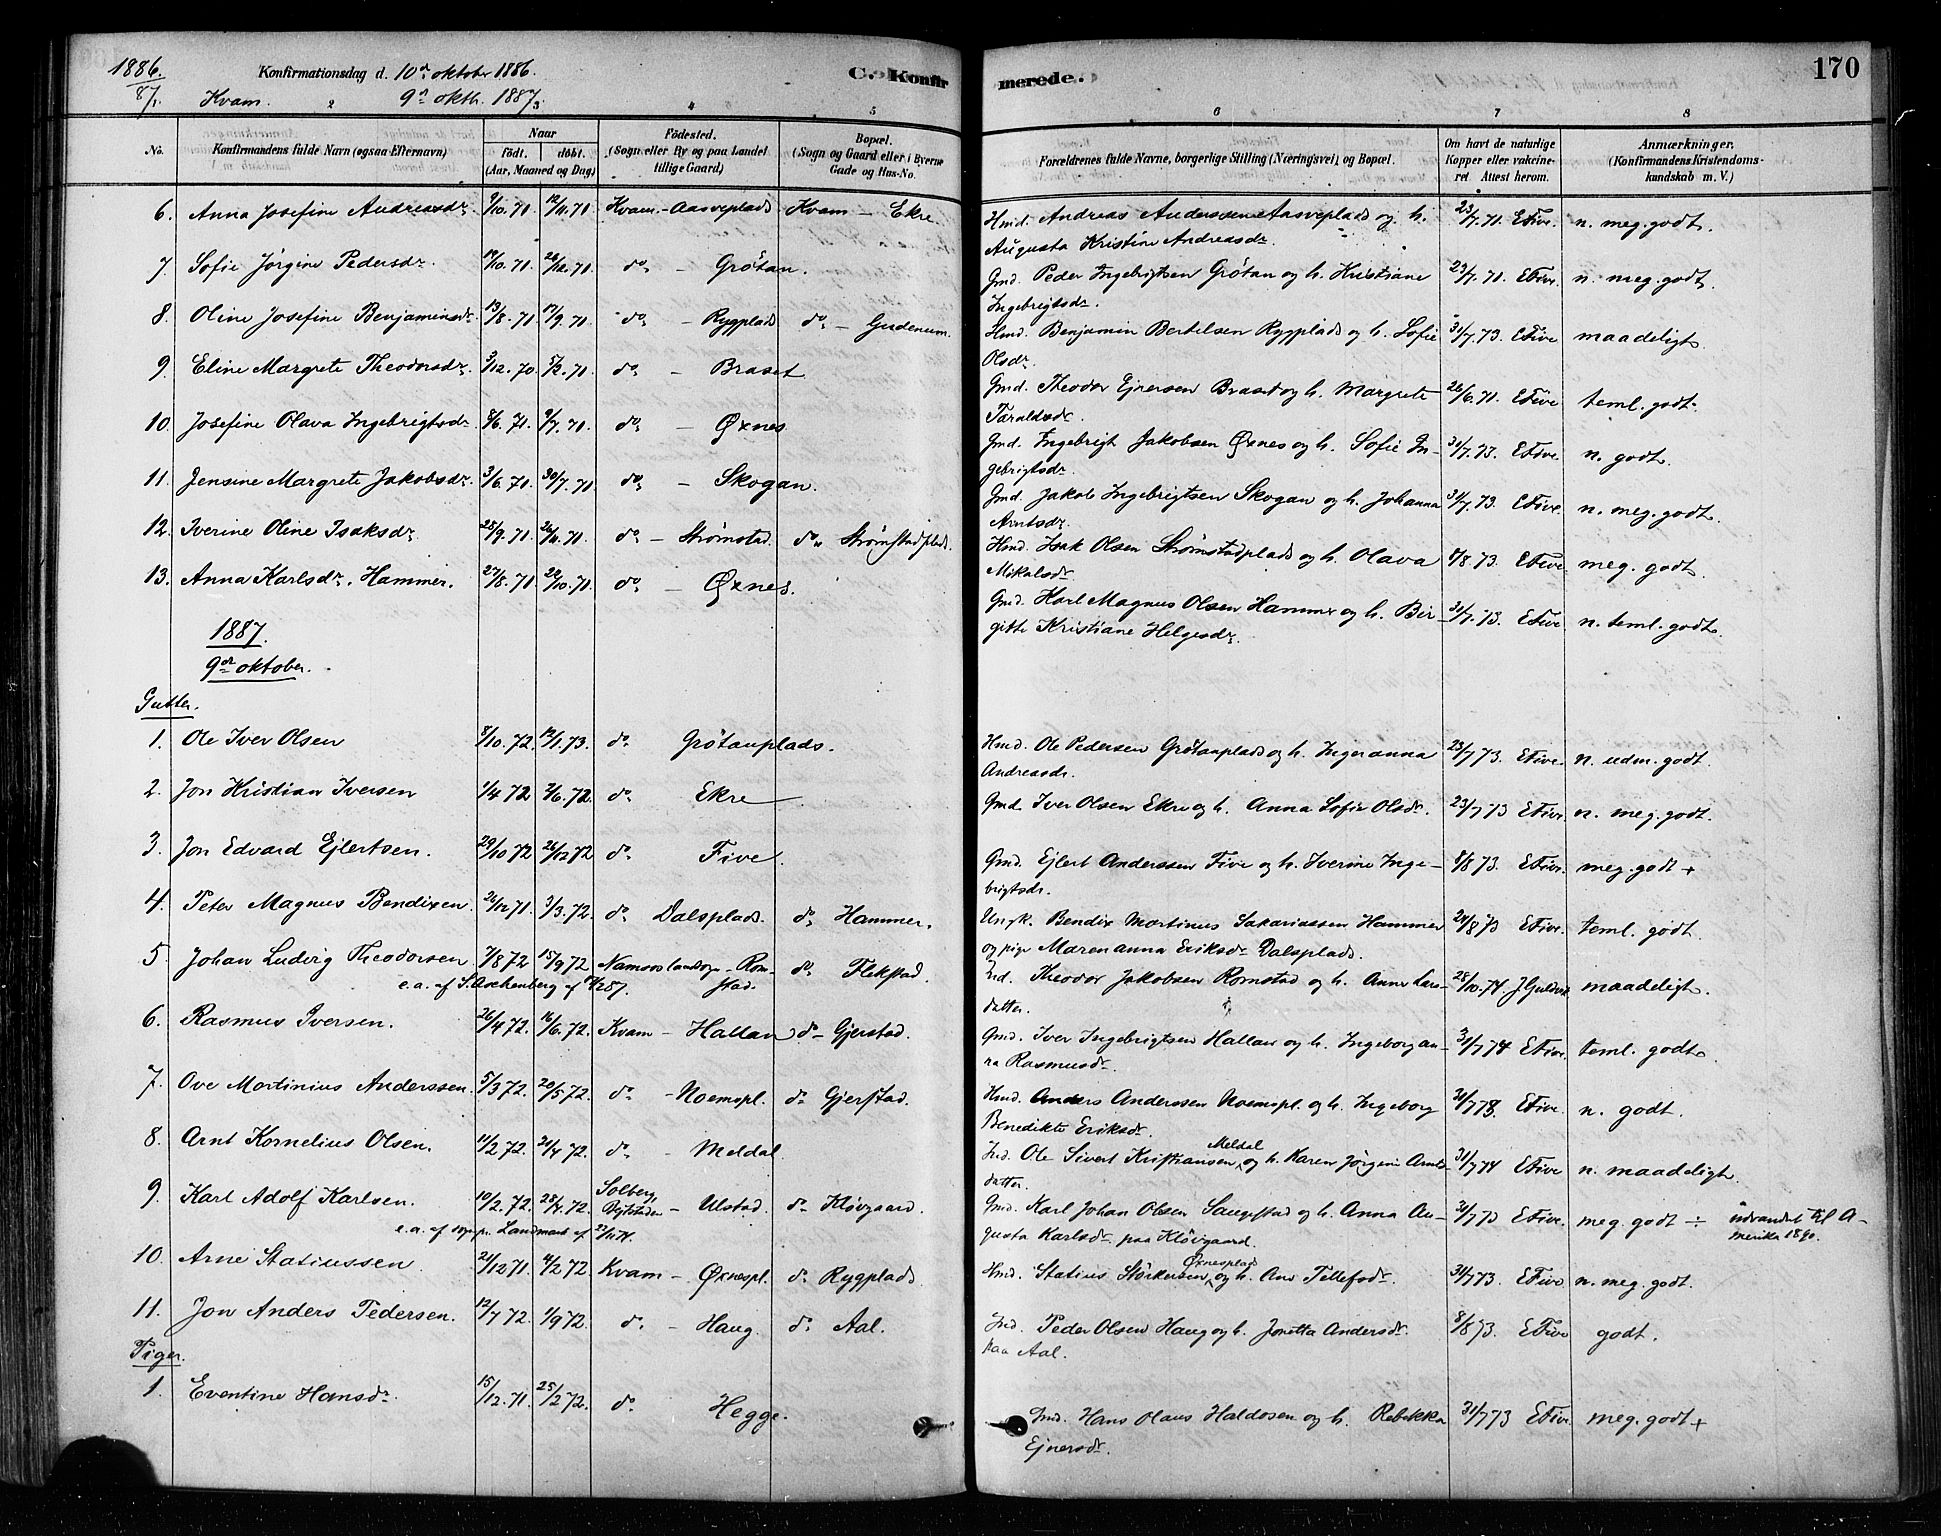 1886. Konfirmationsdag d. 10de oktober 1886. C. Konfirmerede. 170
87/1 Kvam. 9de oktb. 1887.
2 3 4 5 6 7 8
No. Konfirmandens fulde Navn (ogsaa Efternavn) Naar født. døbt. (Aar, Maaned og Dag) Fødested. (Sogn eller By og paa Landet tillige Gaard.) Bopæl. (Sogn og Gaard eller i Byerne Gade og Hus-No. Forældrenes fulde Navne, borgerlige Stilling (Næringsvei) og Bopæl. Om havt de naturlige Kopper eller vakcineret. Attest herom. Anmærkninger. (Konfirmandens Kristendomskundskab m. V.)
6. Anna Josefine Andreasdr. 9/10.71 12/11.71 Kvam - Aasveplads Kvam - Ekre Hmd. Andreas Anderssen Aasveplads og h. 23/7.71. E Five. n. meg. godt.
Augusta Kristine Andreasdr.
7. Sofie Jørgine Pedersdr. 17/10.71. 26/12.71. do - Grøtan. Gmd. Peder Ingebrigtsen Grøtan og h. Kristiane 23/7.71. E Five. n. meg. godt.
Ingebrigtsdr.
8. Oline Josefine Benjaminsdr. 13/8.71. 17/9.71. do - Rygplads do - Gudenum. Hmd. Benjamin Bertelsen Rygplads og h. Sofie 31/7.73. E Five maadeligt.
Olsdr.
9. Eline Margrete Theodorsdr. 3/12.70. 5/2.71. do - Braset. Gmd. Theodor Ejnersen Braset og h. Margrete 26/6.71. E Five teml. godt.
Taraldsdr.
10. Josefine Olava Ingebrigtsdr. 8/6.71. 9/7.71. do - Øxnes Gmd. Ingebrigt Jakobsen Øxnes og h. Sofie In- 31/7.73. E Five. n. godt.
gebrigtsdr.
11. Jensine Margrete Jakobsdr. 3/6.71. 30/7.71. do - Skogan. Gmd. Jakob Ingebrigtsen Skogan og h. Johanna 31/7.73. E Five. n. meg. godt.
Arntsdr.
12. Iverine Oline Isaksdr. 25/9.71. 26/11.71. do - Strømstad. do Strømstadplads. Hmd. Isak Olsen Strømstadplads og h. Olava 8/8.73. E Five. meg. godt.
Mikalsdr.
13. Anna Karlsdr. Hammer. 27/8.71. 22/10.71. do - Øxnes. Gmd. Karl Magnus Olsen Hammer og h. Bir- 31/7.73. E Five n. teml. godt.
gitte Kristiane Helgesdr.
1887.
9de oktober.
Gutter.
1. Ole Iver Olsen 8/10.72. 12/1.73. do Grøtanplads. Hmd. Ole Pedersen Grøtanplads og h. Ingeranna 23/7 73. E Five. n. udm. godt.
Andreasdr.
2. Jon Kristian Iversen 1/4 72 2/6.72. do Ekre Gmd. Iver Olsen Ekre og h. Anna Sofie Olsdr. 23/7 73 E Five. n. meg. godt.
3. Jon Edvard Ejlertsen. 29/10 72 26/12 72 do Five. Gmd. Ejlert Anderssen Five og h. Iverine Inge- 8/8 73. E Five. meg. godt +
brigtsdr.
4. Peter Magnus Bendixen 26/12 71. 3/3.72. do Dalsplads. do Hammer. Ungk. Bendix Martinus Sakariassen Hammer 24/8 73 E Five. teml. godt.
og pige Marenanna Eriksdr Dalsplads.
5. Johan Ludvig Theodorsen 7/8 72 15/9 72 Namsos landsogn - Romstad. do Flekstad. Ind. Theodor Jakobsen Romstad og h. Anne Lars- 28/10.74. J Guldvik maadeligt.
datter.
e.a. af S. Aschenberg af 87.
6. Rasmus Iversen. 26/4 72. 16/6.72. Kvam - Hallan do - Gjerstad. Gmd. Iver Ingebrigtsen Hallan og h. Ingeborgan- 31/7 74 E Five. teml. godt.
na Rasmusdr.
7. Ove Martinius Anderssen. 5/3 72. 20/5 72. do - Noemspl. do Gjerstad. Hmd. Anders Anderssen Noemspl. og h. Ingeborg 31/7 73. E Five. n. godt.
Benedikte Eriksdr.
8. Arnt Kornelius Olsen. 11/2 72. 21/4 72. do - Meldal. Ind. Ole Sivert Kristiansen Meldal og h. Karen Jørgine Arnts- 31/7 74 E Five n. maadeligt.
datter.
9. Karl Adolf Karlsen. 10/2.72. 28/4.72. Solberg, Bejtstaden - Ulstad. do Kløvgaard. Gmd. Karl Johan Olsen Saugestad og h. Anna Au- 31/7 73 E Five. meg. godt ÷ udvandret til A-
gusta Karlsdr. paa Kløvgaard. merika 1890.
e.a. af sogpr. Landmark af
10. Arne Statiussen 21/12 71. 4/2 72. Kvam - Øxnespl. do Rygplads Hmd. Statius Størkersen Øxnesplads og h. Ane Tellefsdr. 31/7 73. E Five n. meg. godt.
11. Jon Anders Pedersen. 12/7 72. 1/9 72. do - Haug. do Aal. Ind. Peder Olsen Haug og h. Jonetta Andersdr. 8/8 73. E Five godt.
paa Aal.
Piger.
1. Eventine Hansdr. 15/12.71. 25/2 72. do Hegge. Gmd. Hans Olaus Haldosen og h. Rebekka 31/7 73 E Five. meg. godt +
Ejnersdr.